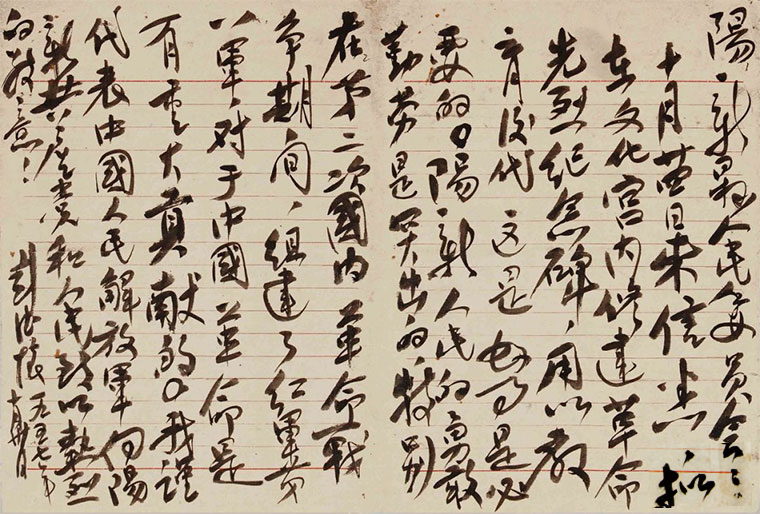 陽新县人民委员会:
十月廿日来信悉 拟
在文化宫内修建革命
先烈纪念碑,用以教
育后代 这是好事是必
要的。陽新人民的勇敢
勤劳是突出的,特别
在第二次國内革命战
争期间,组建了红軍第
八軍,对于中國革命是
有重大貢献的。我謹
代表中國人民解放軍向陽
新共产党和人民致以熱烈
的敬意!
彭德怀 一九五七年